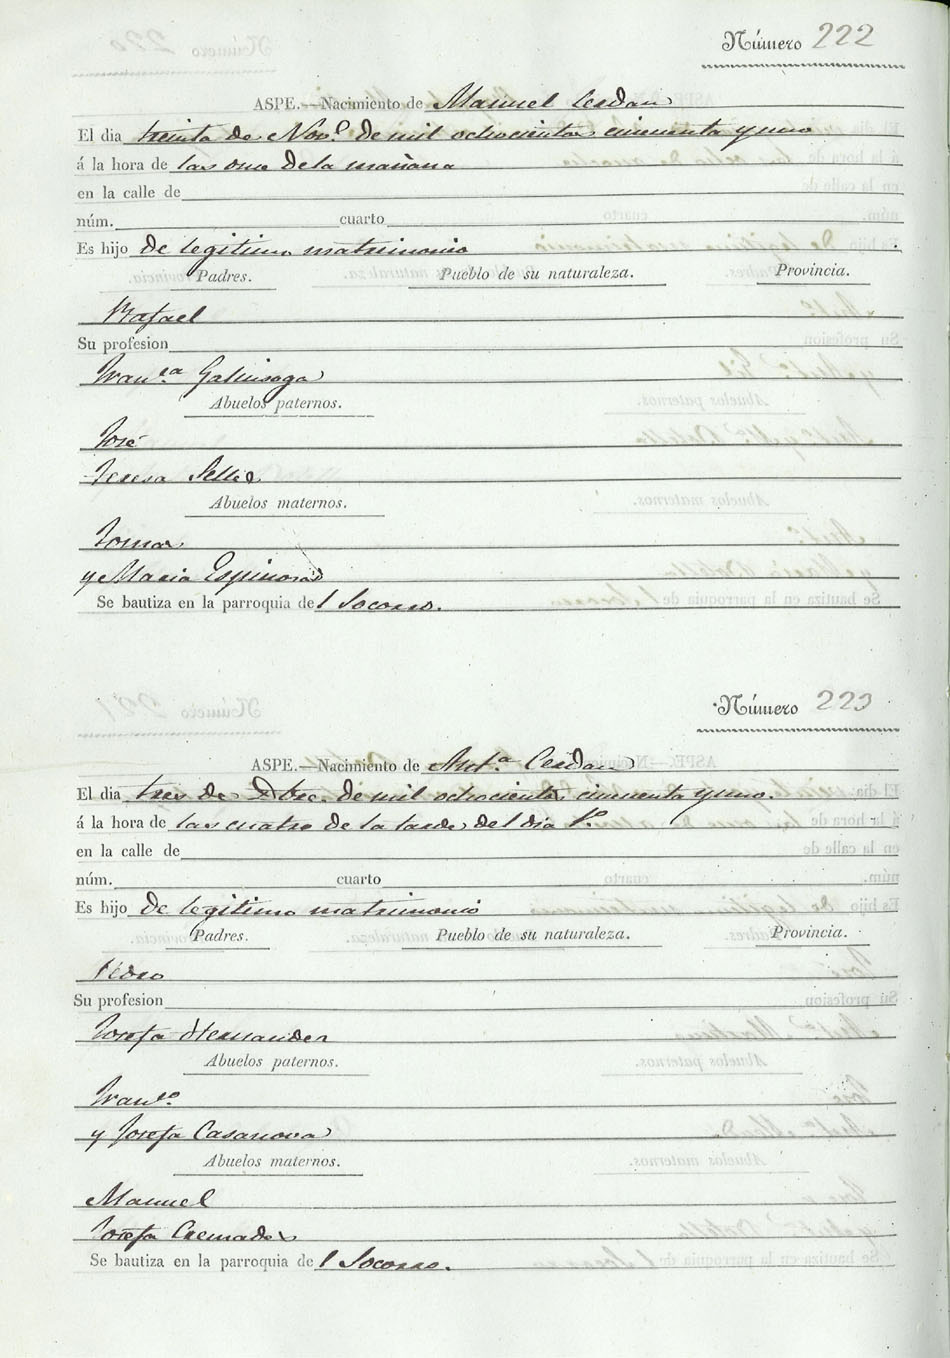 Número 222
ASPE.—Nacimiento de Manuel Cerdan
El dia treinta de Nov.e de mil ochocientos cincuenta y uno
á la hora de las once de la mañana
en la calle de
núm. cuarto
Es hijo de legitimo matrimonio
Padres. Pueblo de su naturaleza. Provincia.
Rafael
Su profesion
Fran.ca Galinsoga
Abuelos paternos.
José
Teresa Selles
Abuelos maternos.
Tomas
y Maria Espinosa
Se bautiza en la parroquia del Socorro.
Número 223
ASPE.—Nacimiento de Ant.a Cerdan
El dia tres de Dbre. de mil ochocientos cincuenta y uno.
á la hora de las cuatro de la tarde del dia 1.o
en la calle de
núm. cuarto
Es hijo de legitimo matrimonio
Padres. Pueblo de su naturaleza. Provincia.
Pedro
Su profesion
Josefa Hernandez
Abuelos paternos.
Fran.co
y Josefa Casanova
Abuelos maternos.
Manuel
Josefa Cremades
Se bautiza en la parroquia del Socorro.